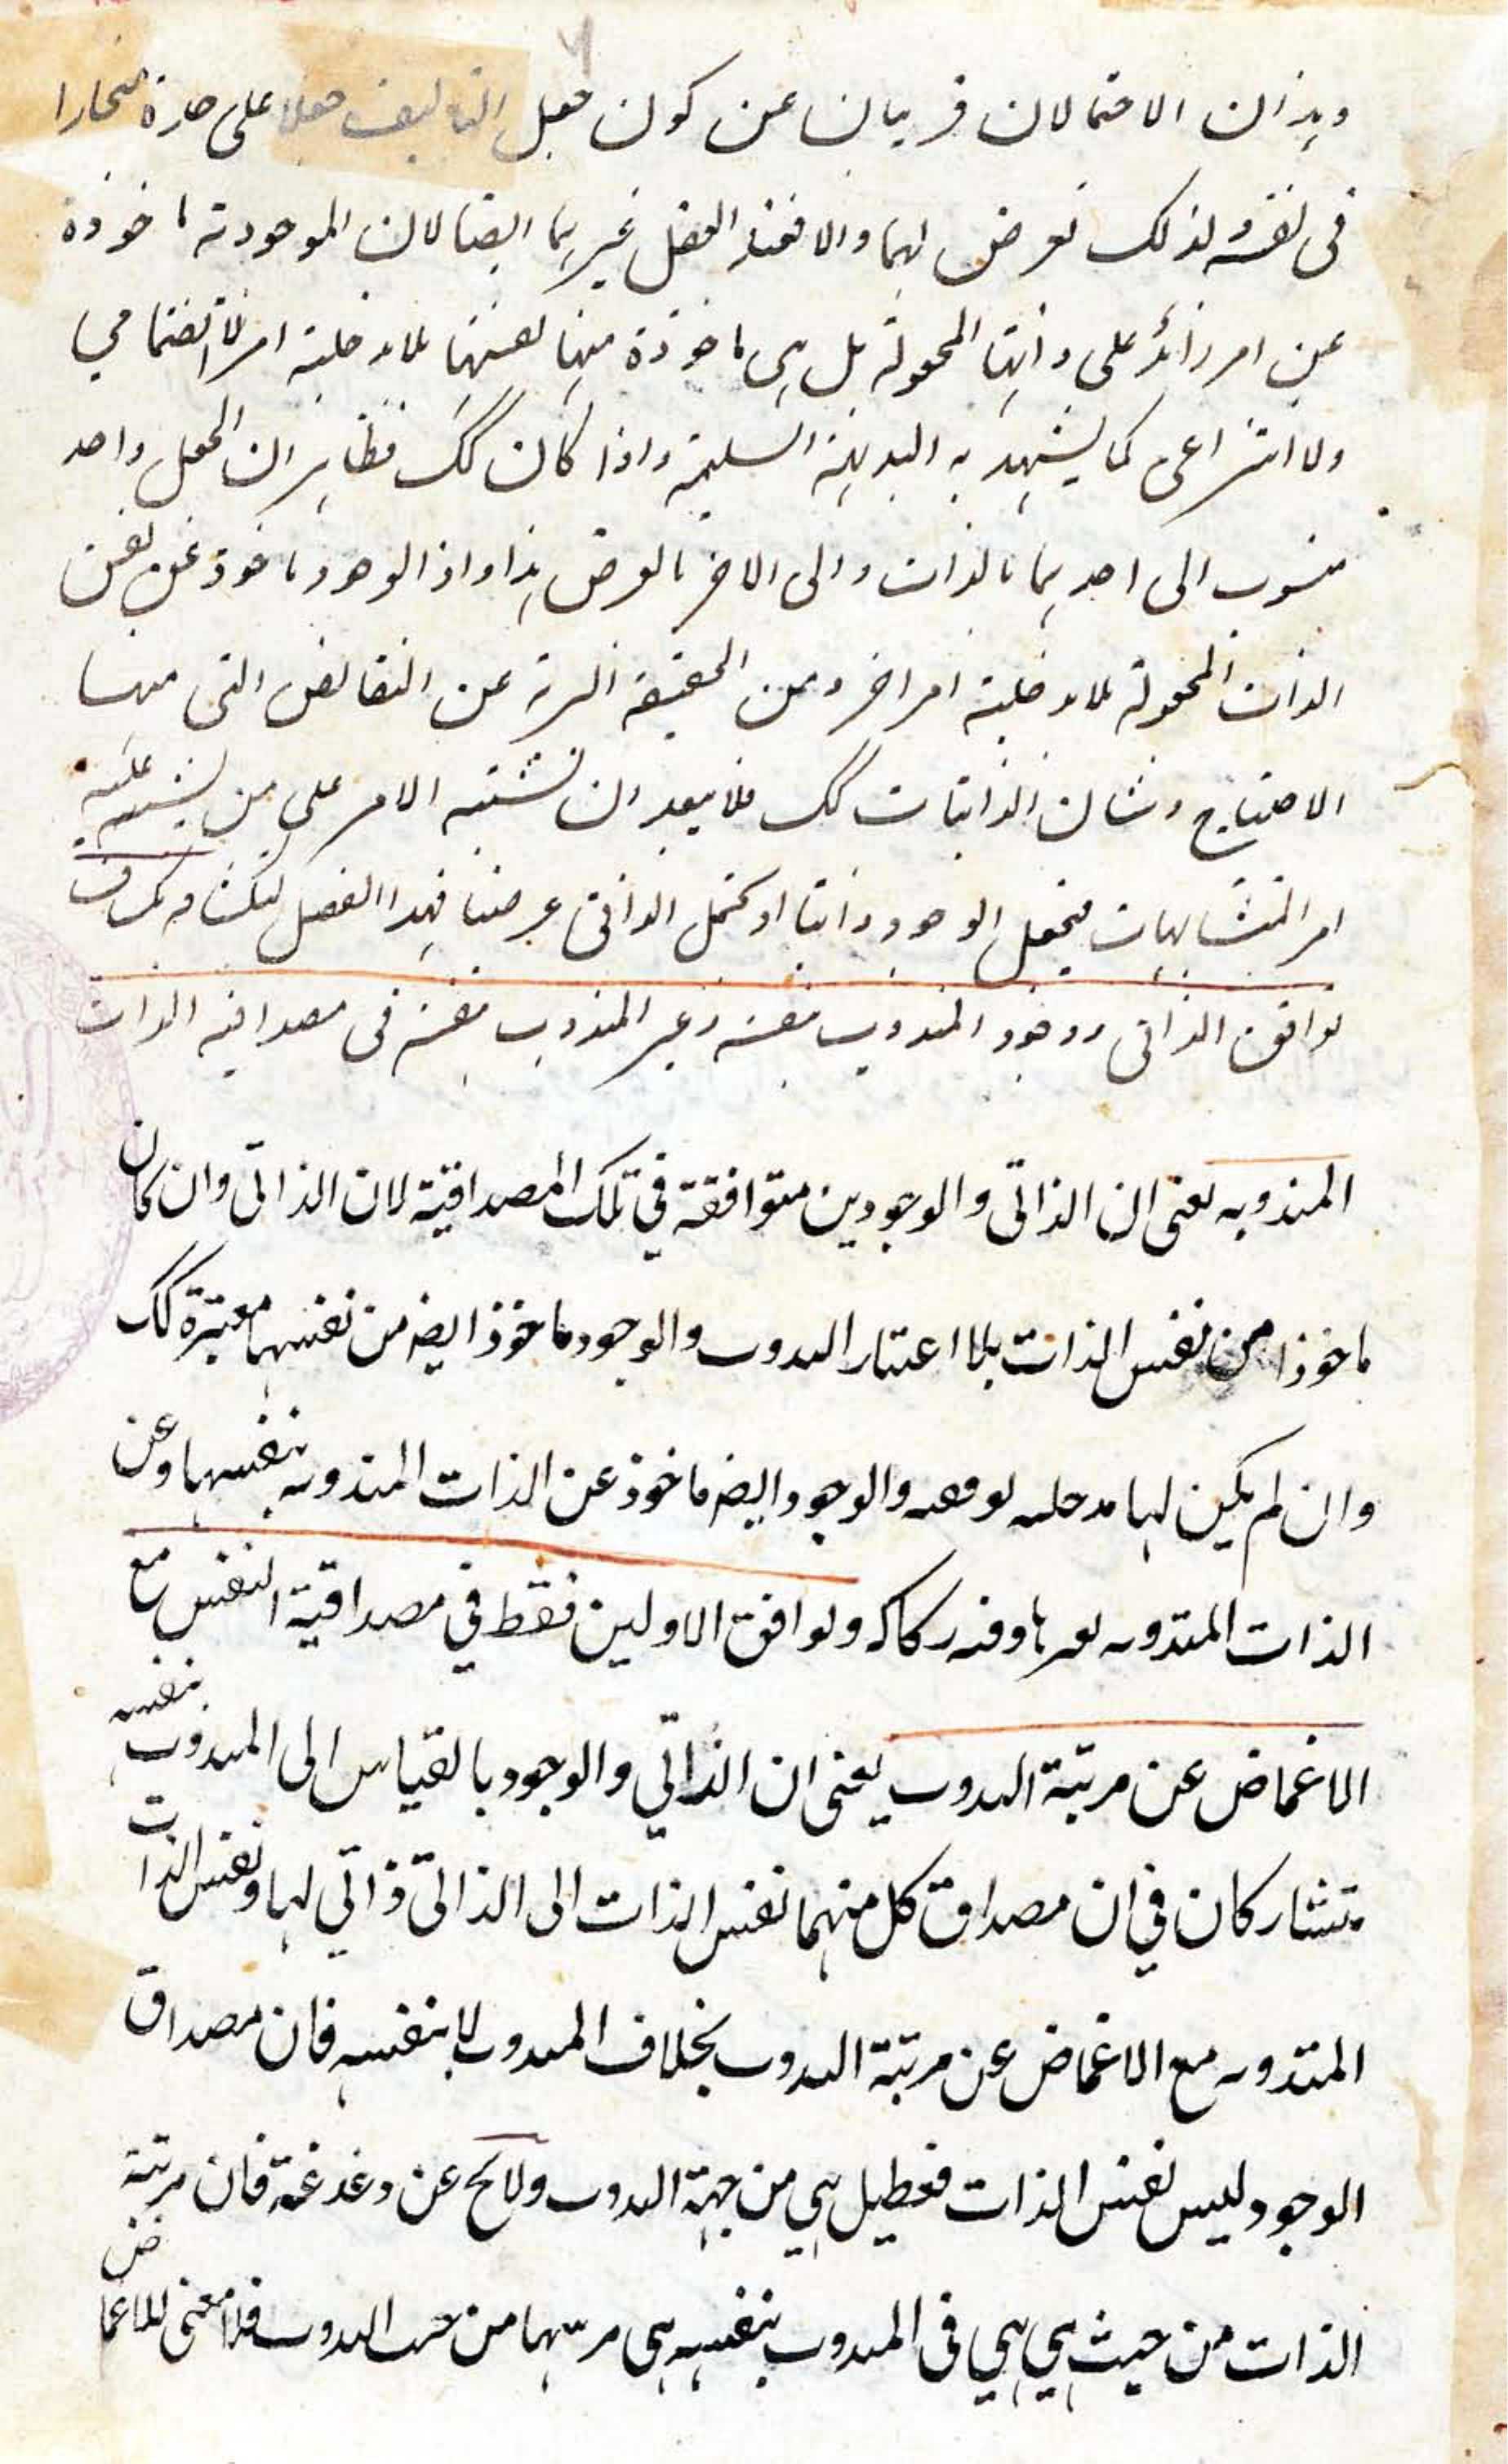 وهذان الاحتمالان قريبان عن كون جعل التاليف جعلا على حدة منحازا
فى نفسه ولذلك تعرض لهما والا فعند العقل غيرهما ايضا لان الموجودية ماخوذة
عن امر زائد على ذاتها المجعولة بل هى ماخوذة منها نفسها بلا مدخلية امر لا انضمامي
ولا انتزاعى كما يشهد به البديهة السليمة واذا كان كك فظاهر ان الجعل واحد
منسوب الى احدهما بالذات والى الاخر بالعرض هذا واذا الوجود ماخوذ عن نفس
الذات المجعولة بلا مدخلية امر اخر وعن الحقيقة البرية عن النقائص التى منها
الاحتياج وشان الذاتيات كك فلا يبعد ان يشتبه الامر على من يشتبه عليه
امر المتشابهات فيجعل الوجود ذاتيا او يجعل الذاتى عرضيا فهذا الفصل
توافق الذاتى ووجود المندوب بنفسه وغير المندوب بنفسه فى مصداقية الذات
المندوبه يعنى ان الذاتى والوجودين متوافقة في تلك المصداقية لان الذاتى وان كان
ماخوذا من نفس الذات بلا اعتبار الىدوب والوجود ماخوذ ايضه من نفسها معتبرة كك
وان لم يكن لها مدخليه والوجود ايضه ماخوذ عن الذات المندوبه بنفسها وعن
الذات المندوبه وفيه ركاكه وتوافق الاولين فقط في مصداقية النفس مع
الاغماض عن مرتبة الىدوب يعنى ان الذاتي والوجود بالقياس الى المندوب بنفسه
يتشاركان في ان مصداق كل منهما نفس الذات الى الذاتى ذاتي لها ونفس الذات
المندوبه مع الاغماض عن مرتبة الىدوب بخلاف المندوب لا بنفسه فان مصداق
الوجود ليس نفس الذات فقط بل هي من جهة الىدوب ولا يخ عن دغدغة فان مرتبة
الذات من حيث هي هي فى المندوب بنفسه هى مرتبتها من حيث الىدوب فلا معنى للاغماض